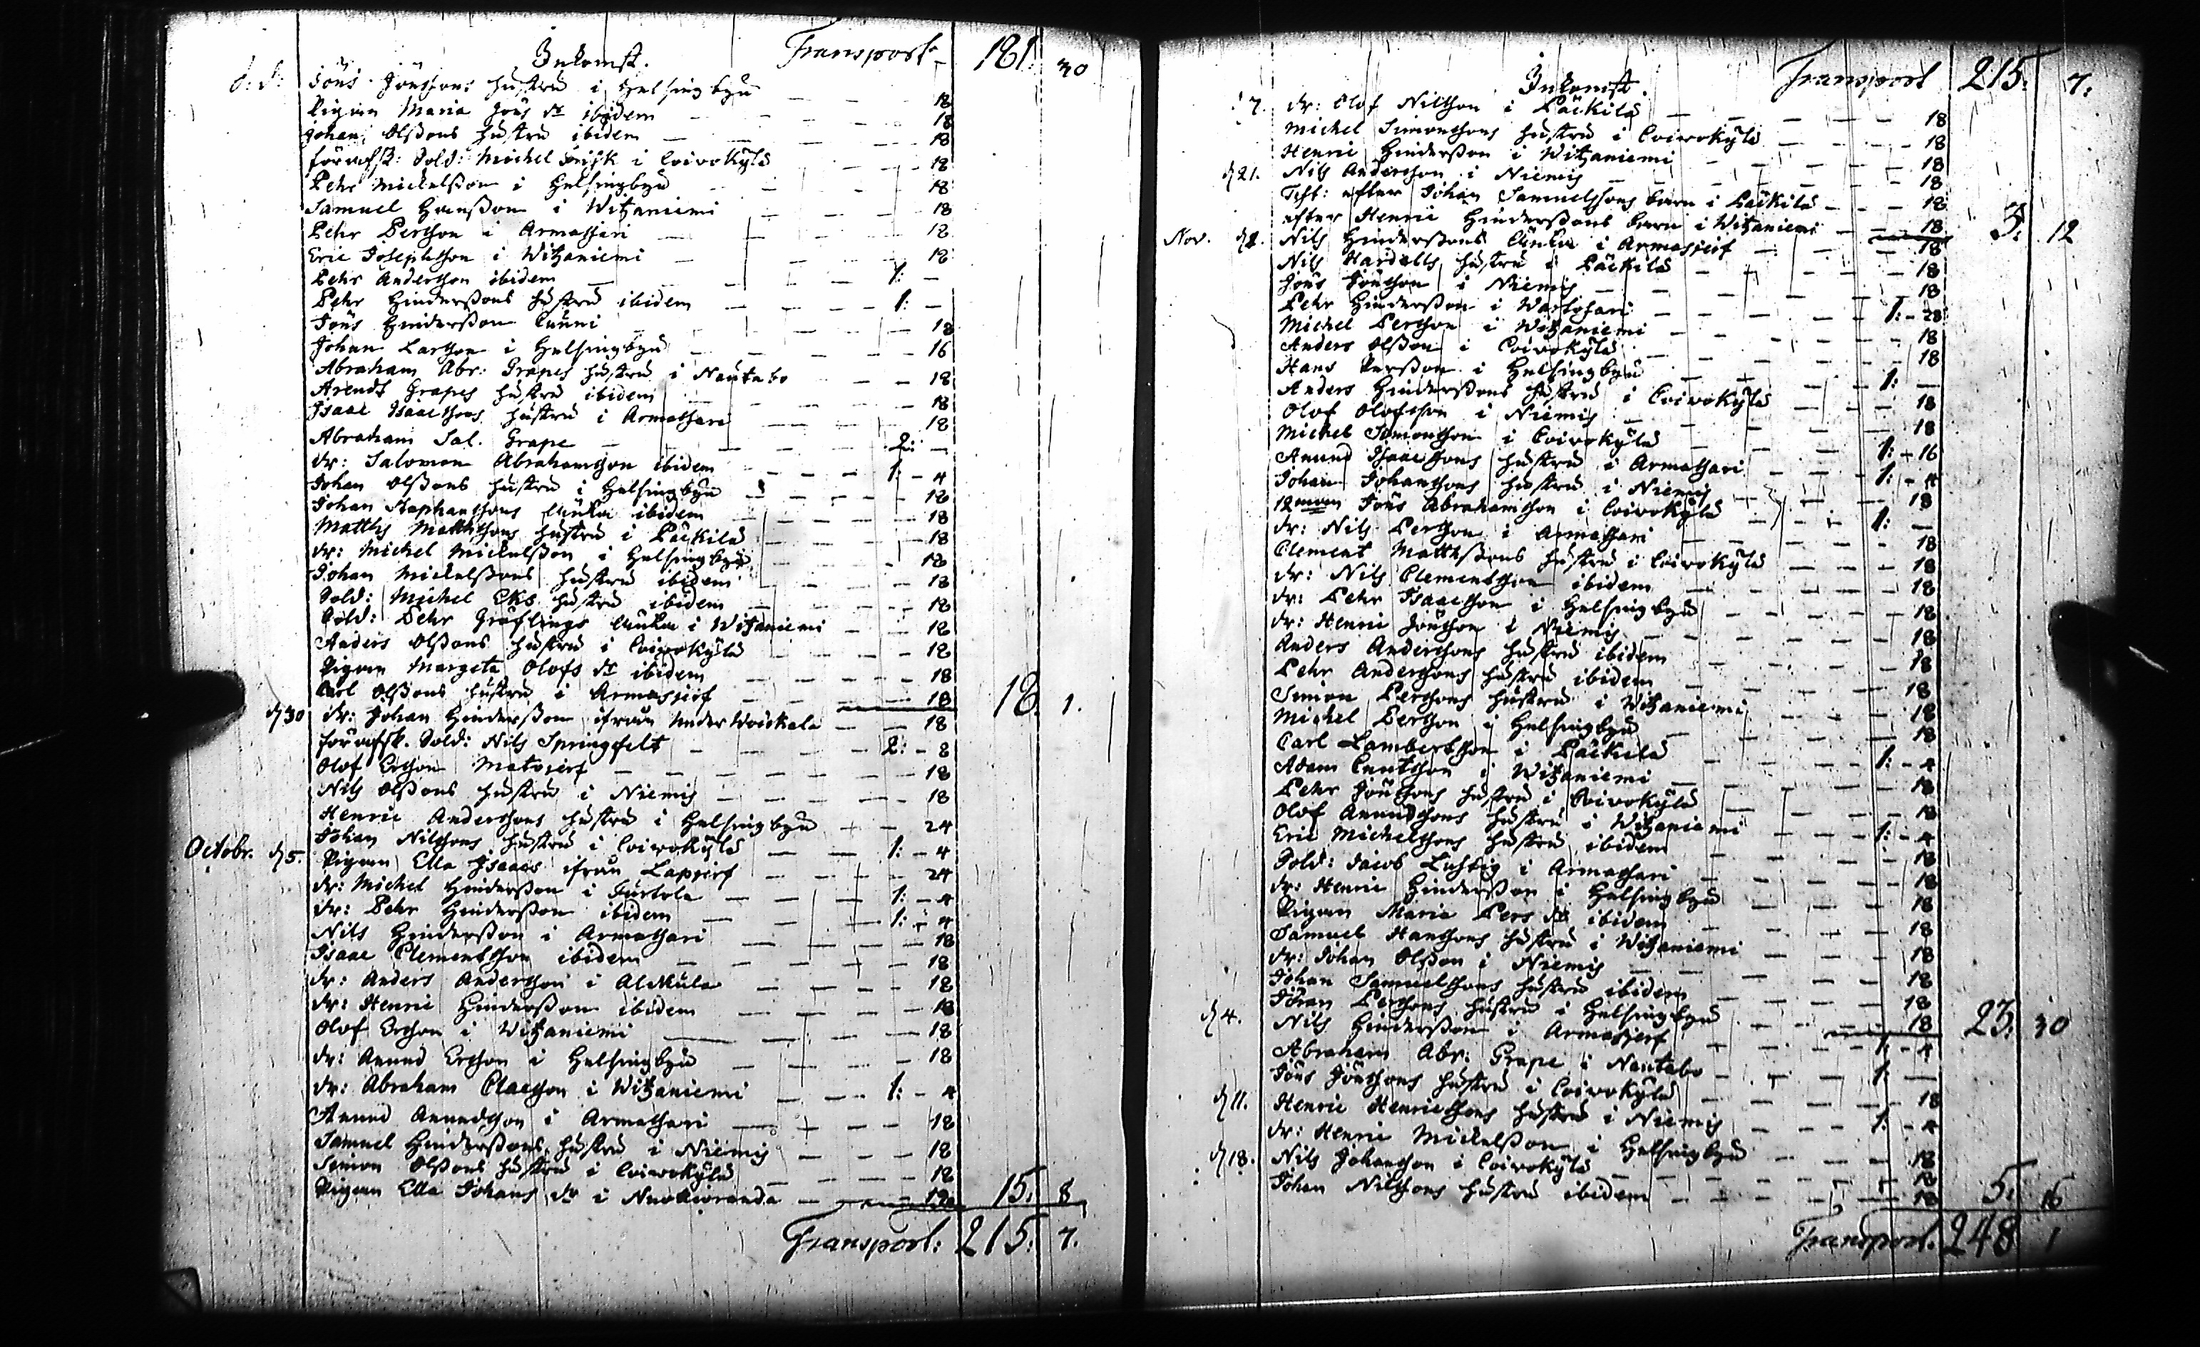 Inkomst. Transport 181. 30
d: d: Jöns Jönssons hustru i Helsingbyn — 18
Pigan Maria Jöns dr ibidem — 18
Johan Olssons hustru ibidem — 18
förafsk: Sold: Michel i Coivokylä — 18
Pehr Mickelsson i Helsingbyn — 18
Samuel Hansson i Witzaniemi — 18
Pehr Persson i Armassari — 18
Eric Josephsson i Witzaniemi — 18
Pehr Andersson ibidem — 1: —
Pehr Hinderssons hustru ibidem — 1: —
Jöns Hindersson — 18
Johan Larsson i Helsingbyn — 16
Abraham Abr: Grapes hustru i Nautabo — 18
Arendt Grapes hustru ibidem — 18
Isaac Isaacssons hustru i Armassari — 18
Abraham Sal. Grape — 2: —
dr: Salomon Abrahamsson ibidem — 1: – 4
Johan Olssons hustru i Helsingbyn — 18
Johan Staphanssons Änka ibidem — 18
Matths Matthssons hustru i Päckilä — 18
dr: Michel Mickelsson i Helsingbyn — 18
Johan Mickelssons hustru ibidem — 18
Sold: Michel Eks hustru ibidem — 18
Sold: Pehr Gräflings Änka i Witzaniemi — 18
Anders Olssons hustru i Coivokylä — 18
Pigan Margeta Olofs dr ibidem — 18
Carl Olssons hustru i Armasjerf — 18 18. 1.
d 30 dr: Johan Hindersson ifrån Under Woickala — 18
förafsk. Sold: Nils Springfelt — 2: – 8
Olof Ersson Matojerf — 18
Nils Olssons hustru i Niemis — 18
Henric Anderssons hustru i Helsingbyn — 24
Johan Nilssons hustru i Coivokylä — 1: – 4
Octobr. d 5. Pigan Ella Isaacs ifrån Lappjerf — 24
dr: Michel Hindersson i Turtola — 1: – 4
dr: Pehr Hindersson ibidem — 1: – 4
Nils Hindersson i Armassari — 18
Isaac Clementsson ibidem — 18
dr: Anders Andersson i Alkkula — 18
dr: Henric Hindersson ibidem — 18
Olof Ersson i Witzaniemi — 18
dr: Anund Ersson i Helsingbyn — 18
dr: Abraham Claesson i Witzaniemi — 1: – 4
Anund Anundsson i Armassari — 18
Samuel Hinderssons hustru i Niemis — 18
Simon Olssons hustru i Coivokylä — 18
Pigan Ella Johans dr i Nuokioranda — 15. 8
Transport: 215. 7.
Inkomst. Transport 215. 7.
7. dr: Olof Nilsson i Päckilä — 18
Michel Simonssons hustru i Coivokylä — 18
Henric Hindersson i Witzaniemi — 18
d 21. Nils Andersson i Niemis — 18
Test: efter Johan Samuelssons barn i Päckilä — 18
efter Henric Hinderssons barn i Witzaniemi — 18 3. 12
Nov. d 2. Nils Hinderssons Änka i Armasjerf — 18
Nils Hardells hustru i Päckilä — 18
Jöns Jönsson i Niemis — 18
Pehr Hindersson i — 1: – 28
Michel Persson i Witzaniemi — 18
Anders Olsson i Coivokylä — 18
Hans Persson i Helsingbyn — 1: —
Anders Hinderssons hustru i Coivokylä — 18
Olof Olofsson i Niemis — 18
Michel Simonsson i Coivokylä — 1: – 16
Anund Isaacssons hustru i Armassari — 1: – 4
Johan Johanssons hustru i Niemis — 18
12man Jöns Abrahamsson i Coivokylä — 1: —
dr: Nils Persson i Armassari — 18
Clement Matthssons hustru i Coivokylä — 18
dr: Nils Clementsson ibidem — 18
dr: Pehr Isaacsson i Helsingbyn — 18
dr: Henric Jönsson i Niemis — 18
Anders Anderssons hustru ibidem — 18
Pehr Anderssons hustru ibidem — 18
Simon Perssons hustru i Witzaniemi — 18
Michel Persson i Helsingbyn — 18
Carl Lambertsson i Päckilä — 1: – 4
Adam Cnutsson i Witzaniemi — 18
Pehr Jönssons hustru i Coivokylä — 18
Olof Anundssons hustru i Witzaniemi — 1: – 4
Eric Michelssons hustru ibidem — 18
Sold: Jacob Lustig i Armassari — 18
dr: Henric Hindersson i Helsingbyn — 18
Pigan Maria Pers dr ibidem — 18
Samuel Hanssons hustru i Witzaniemi — 18
dr: Johan Olsson i Niemis — 18
Johan Samuelssons hustru ibidem — 18
Johan Perssons hustru i Helsingbyn — 18 23. 30
d 4. Nils Hindersson i Armasjerf — 1: – 4
Abraham Abr: Grape i Nautabo — 1: —
Jöns Jönssons hustru i Coivokylä — 18
d 11. Henric Henricssons hustru i Niemis — 1: – 4
dr: Henric Mickelsson i Helsingbyn — 18
d 18. Nils Johansson i Coivokylä — 18
Johan Nilssons hustru ibidem — 18 5. 16
Transport. 248 1